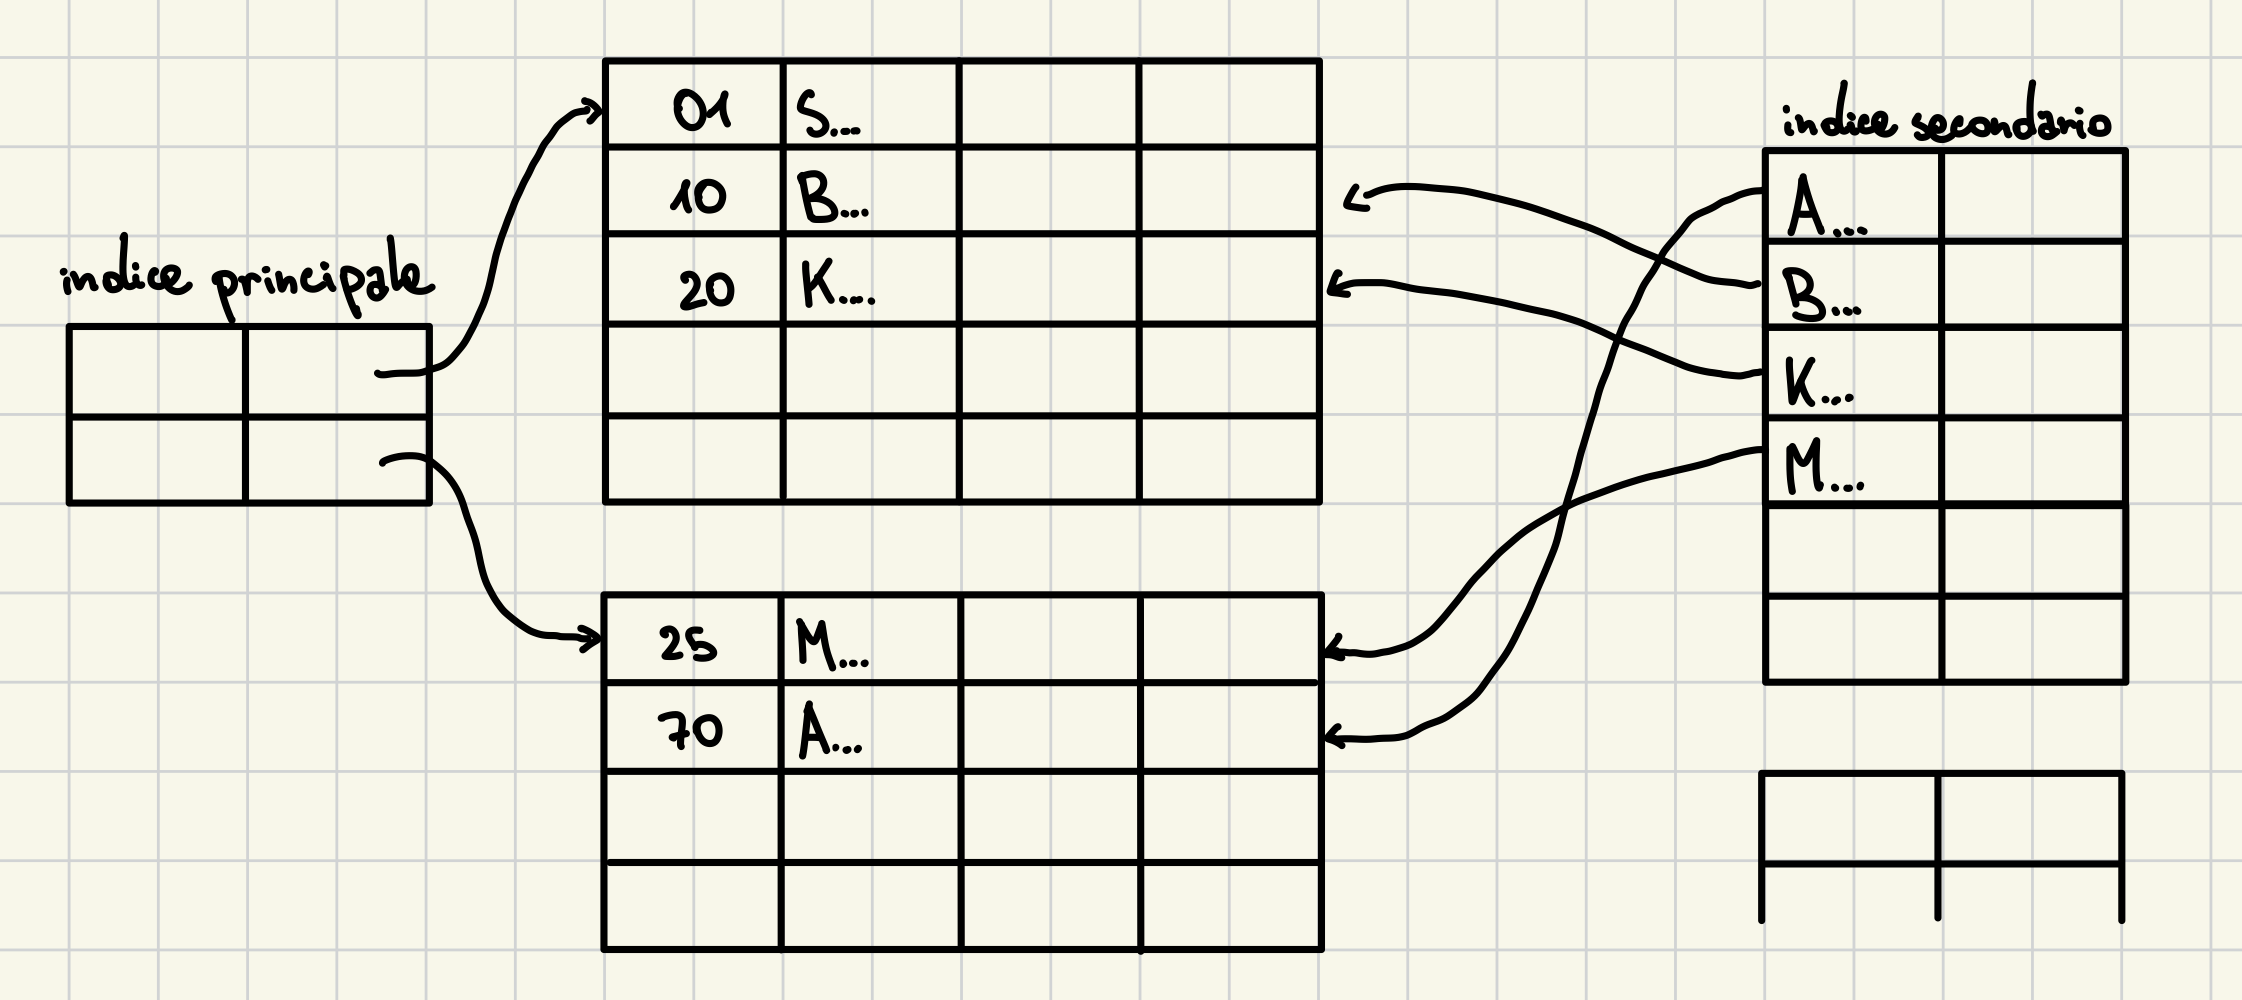 indice principale
01 S...
10 B...
20 K....
25 M...
70 A...
indice secondario
A...
B...
K...
M...